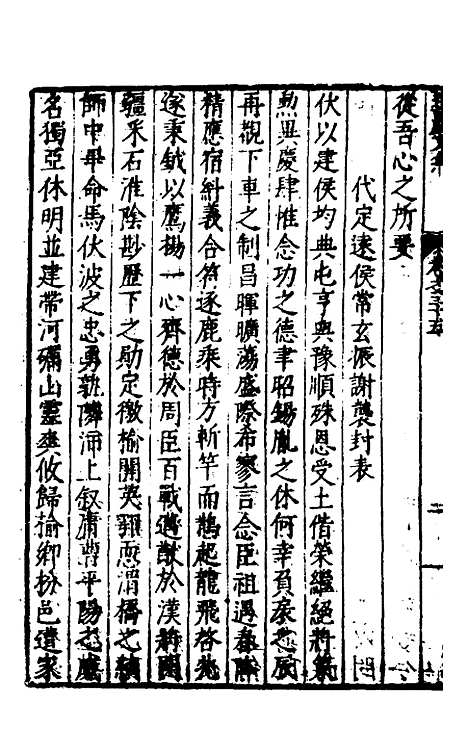 從吾心之所要
代定遠侯常玄振謝襲封表
伏以建侯均典屯亨與豫順殊恩受土偕榮繼絕將
勲異慶肆惟念功之德聿昭錫胤之休何幸負扆之辰
再觀下車之制昌暉曠蕩盛際希寥言念臣祖遇
精應宿糾義合符逐鹿乗時方斬竿而鵲起龍飛啓
遂秉鉞以鷹揚一心齊德於周臣百戰遒猷於漢將
疆采石淮陰尠歷下之勛定微榆關英翱恧渭橋之績
師中畢命馬伏波之忠勇孰隣沛上叙庸尊平陽
名獨亞休明並建帶河礪山靈爽攸歸揄鄉枌邑遺